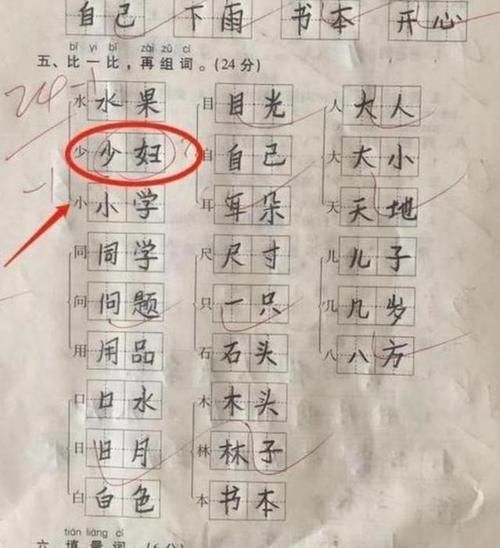 自己 下雨 书本 开心
bǐ yi bǐ zài zǔ cí
五、比一比，再组词。(24分)
24-1
水 水果 目 目光 人 大人
少 少妇 自 自己 大 大小
-1
小 小学 耳 耳朵 天 天地
同 同学 尺 尺寸 儿 儿子
问 问题 只 一只 几 几岁
用 用品 石 石头 八 八方
口 口水 木 木头
日 日月 林 林子
白 白色 本 书本
tián liàng cí
六、填量词。(6分)